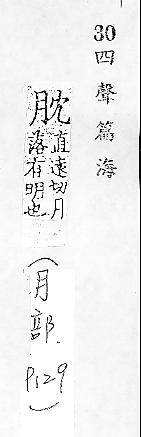 30四聲篇海
直遠切月
落有明也
(月部.
P129)